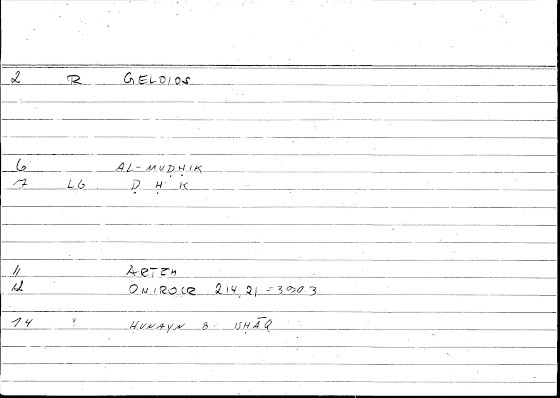 2 R GELOIOS
6 AL-MUḌḤIK
7 LG. Ḍ Ḥ K
11 ARTEM
12 ONIROCR 214,21 = 390.3
14 ? ḤUNAYN B. ISḤĀQ